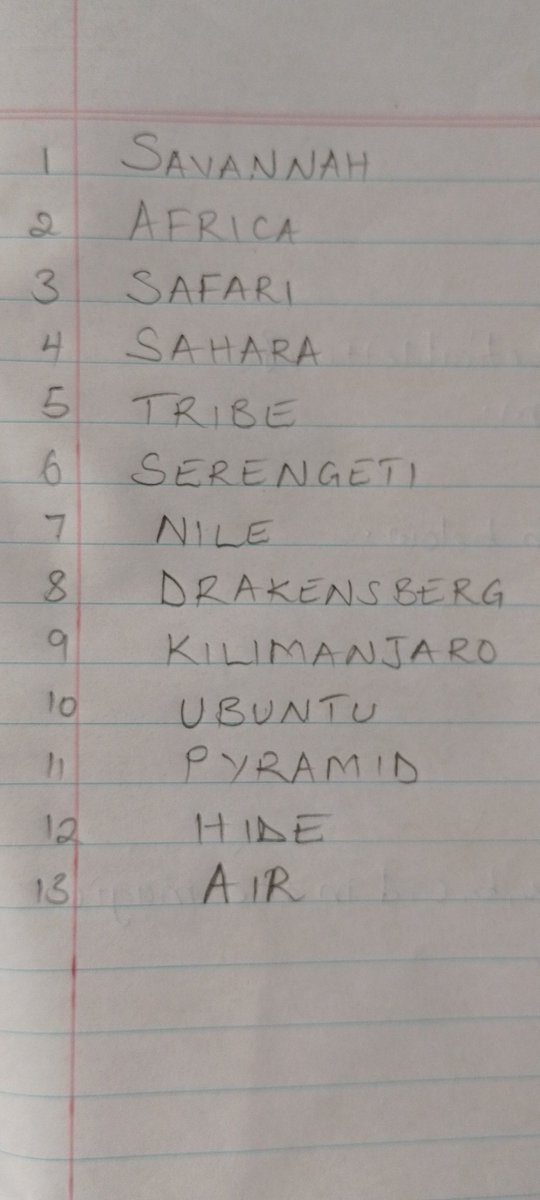 1 SAVANNAH
2 AFRICA
3 SAFARI
4 SAHARA
5 TRIBE
6 SERENGETI
7 NILE
8 DRAKENSBERG
9 KILIMANJARO
10 UBUNTU
11 PYRAMID
12 HIDE
13 AIR